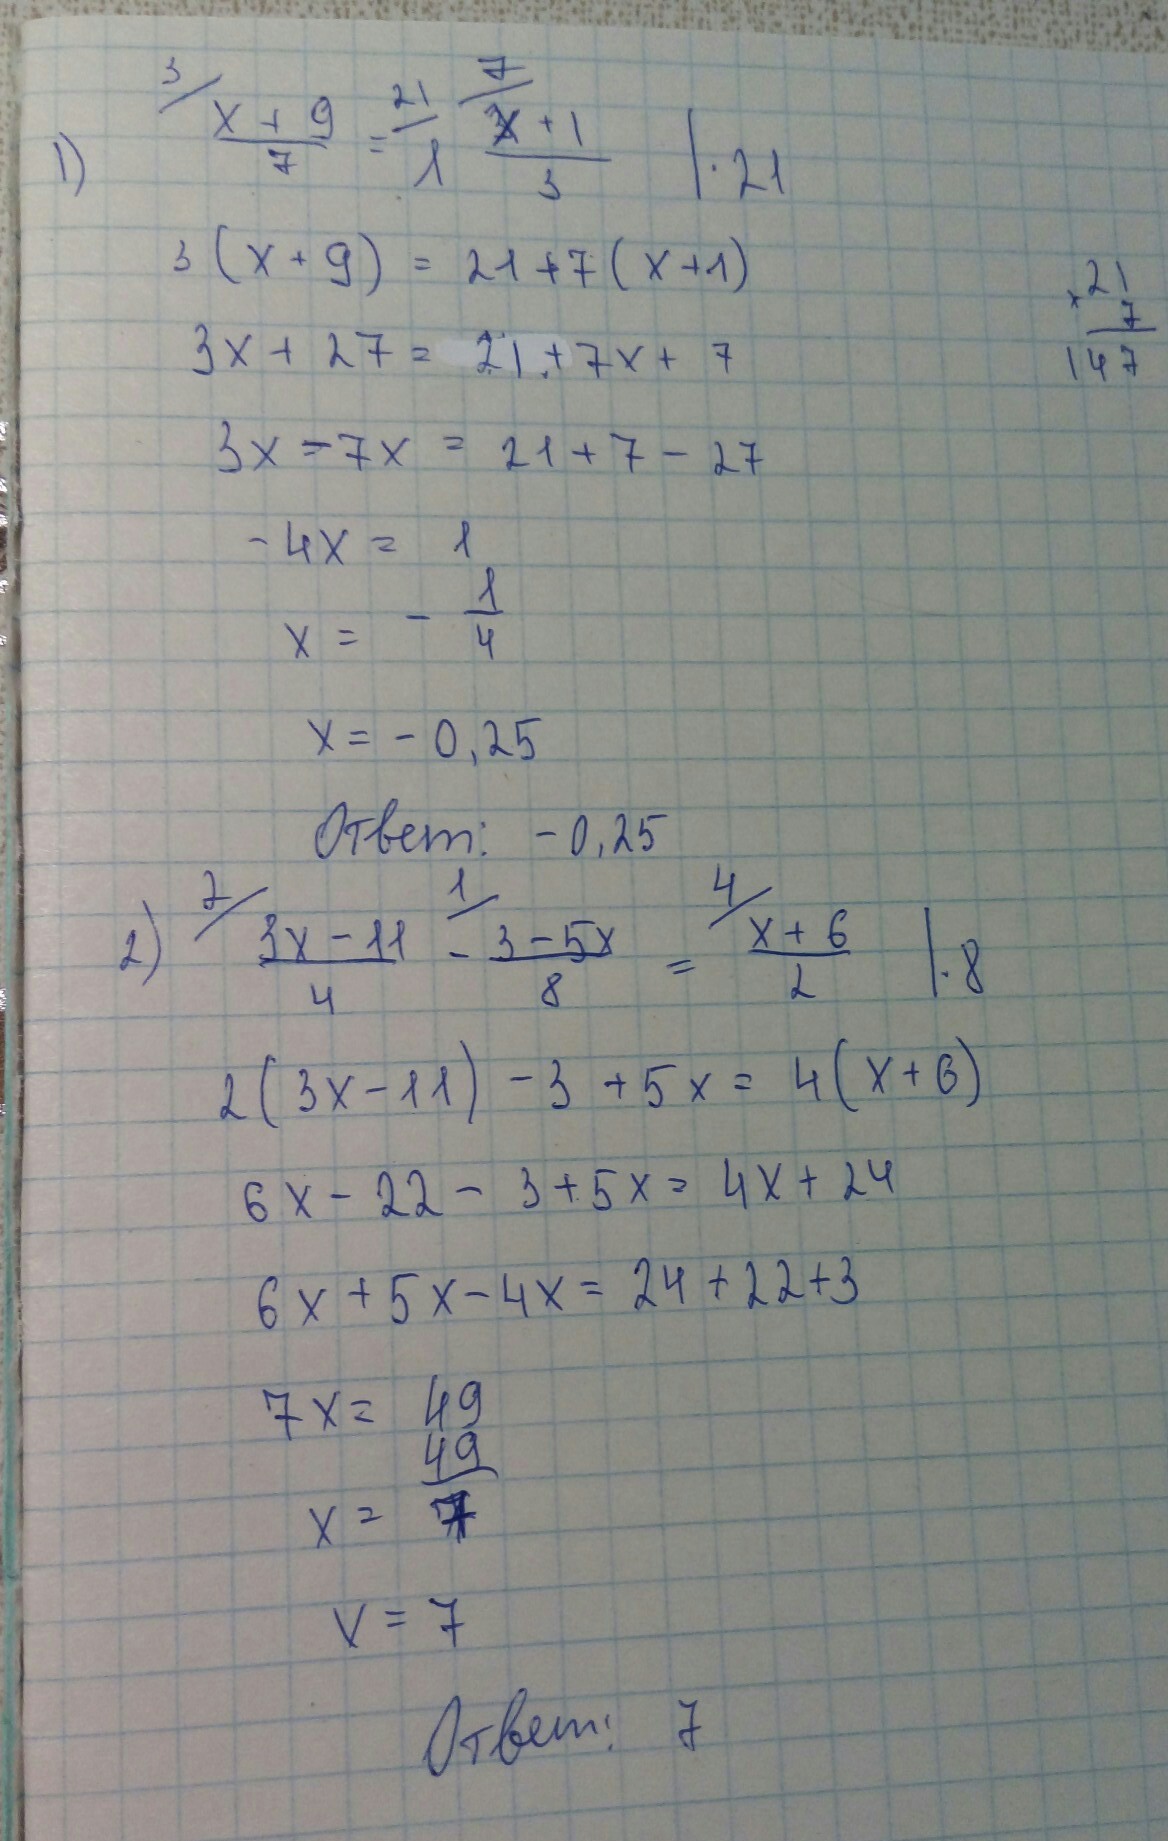 3/ 21/ 7/
1) (x + 9)/7 = 1 (x + 1)/3 | · 21
3 (x + 9) = 21 + 7 (x + 1)
× 21
7
147
3x + 27 = 21 + 7x + 7
3x - 7x = 21 + 7 - 27
- 4x = 1
x = - 1/4
x = - 0,25
Ответ: - 0,25
2/ 1/ 4/
2) (3x - 11)/4 - (3 - 5x)/8 = (x + 6)/2 | · 8
2 (3x - 11) - 3 + 5x = 4 (x + 6)
6x - 22 - 3 + 5x = 4x + 24
6x + 5x - 4x = 24 + 22 + 3
7x = 49
x = 49/7
x = 7
Ответ: 7